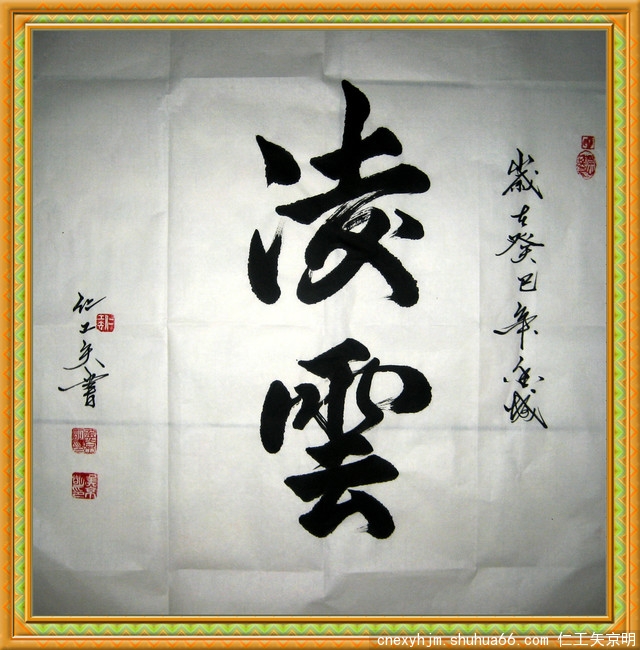 歲在癸巳年
凌雲
仁工矢書
cnexyhjm.shuhua66.com 仁工矢京明